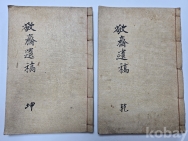 敬齋遺稿
坤
敬齋遺稿
乾
kobay